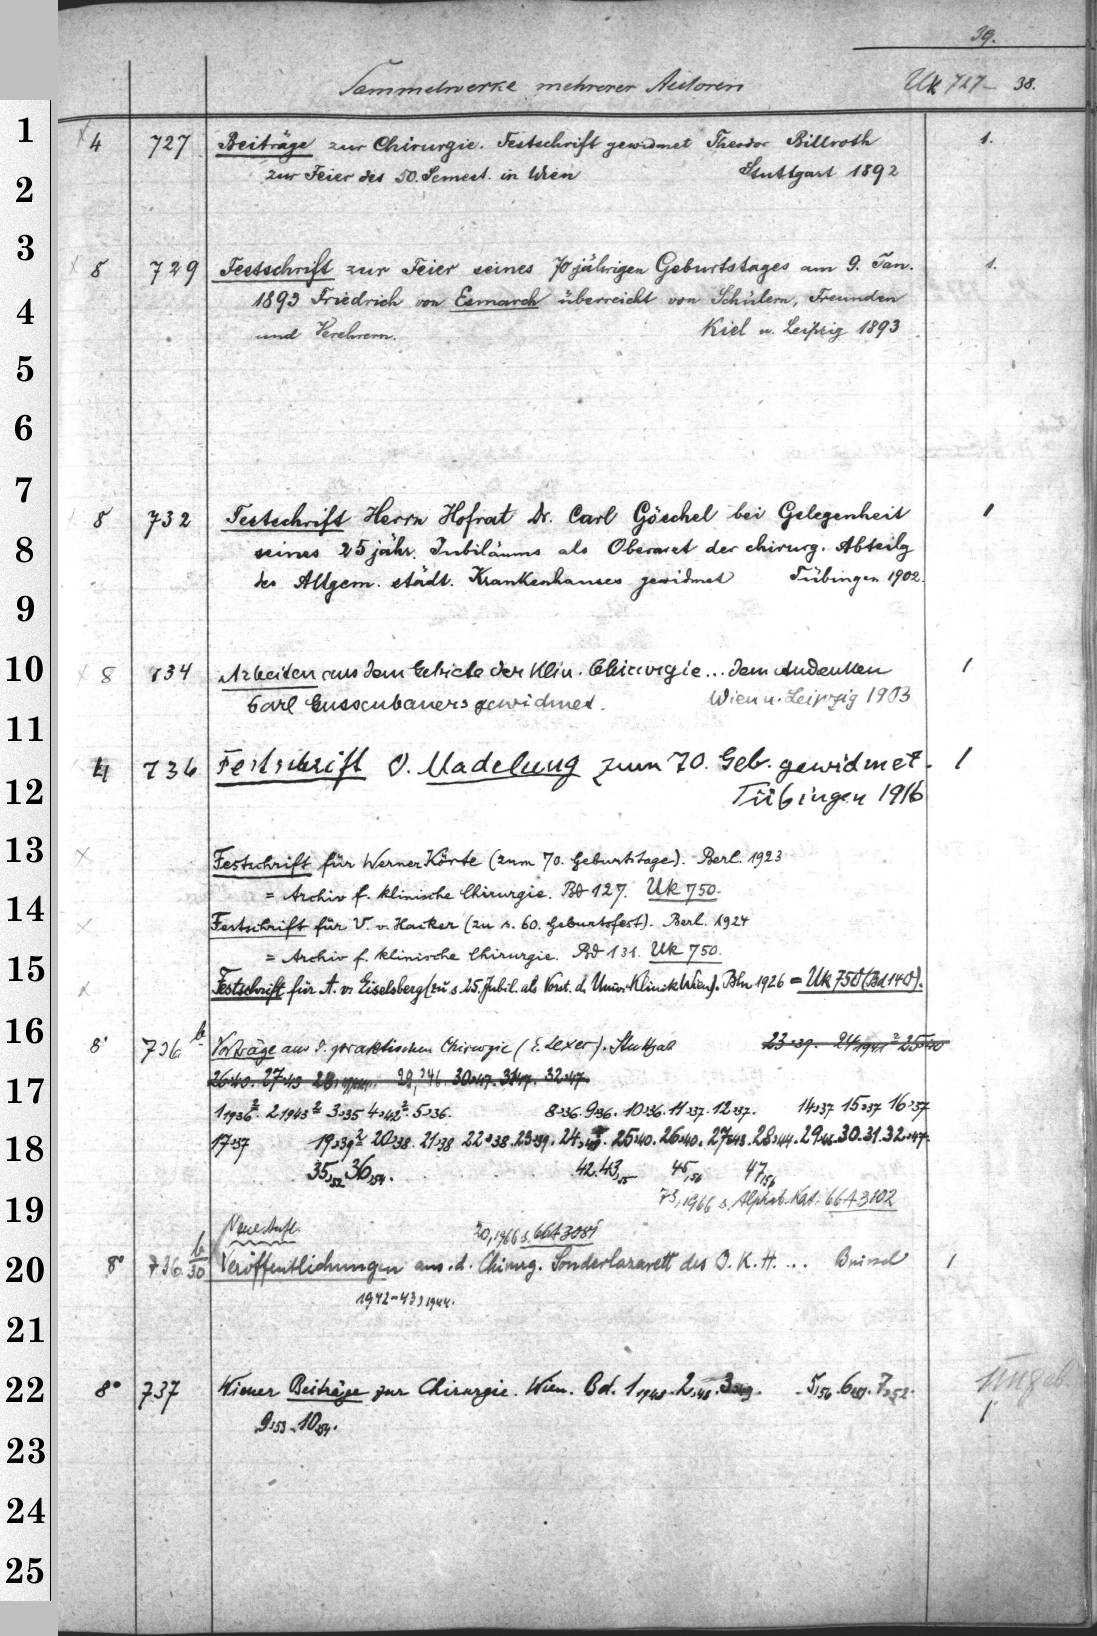 1
2
3
4
5
6
7
8
9
10
11
12
13
14
15
16
17
18
19
20
21
22
23
24
25
39.
Sammelwerke mehrerer Autoren Uk 727- 38.
x 4 727 Beiträge zur Chirurgie. Festschrift gewidmet Theodor Billroth 1.
zur Feier des 50. Semest. in Wien Stuttgart 1892
x 8 729 Festschrift zur Feier seines 70jährigen Geburtstages am 9. Jan. 1.
1893 Friedrich von Esmarch überreicht von Schülern, Freunden
und Verehrern. Kiel u. Leipzig 1893
8 732 Festschrift Herrn Hofrat Dr. Carl Göschel bei Gelegenheit 1
seines 25 jähr. Jubiläums als Oberarzt der chirurg. Abteilg
des Allgem. städt. Krankenhauses gewidmet Tübingen 1902.
x 8 734 Arbeiten aus dem Gebiete der Klin. Chirurgie... dem Andenken 1
Carl Gussenbauers gewidmet. Wien u. Leipzig 1903
4 736 Festschrift O. Madelung zum 70. Geb. gewidmet. 1
Tübingen 1916
x Festschrift für Werner Körte (zum 70. Geburtstage). Berl. 1923
= Archiv f. klinische Chirurgie. Bd 127. Uk 750.
x Festschrift für V. v. Hacker (zu s. 60. Geburtsfest). Berl. 1924
= Archiv f. klinische Chirurgie. Bd 131. Uk 750.
x Festschrift für A. v. Eiselsberg (zu s. 25. Jubil. als Vorst. d. Univ. Klinik Wien). Bln 1926 = Uk 750 (Bd 140).
8° 736 b Vorträge aus d. praktischen Chirurgie (E. Lexer). Stuttgart 23,39. 24,1941² 25,40
26,40. 27,43 30,47. 31,47. 32,47.
1,1936². 2,1943² 3,35 4,42². 5,36. 8,36. 9,36. 10,36. 11,37. 12,37. 14,37 15,37 16,37
17,37 19,39² 20,38. 21,38 22,38. 23,39. 25,40. 26,40. 27,43. 28,44. 30. 31. 32,47.
35,52 36,54. 42. 43,55 45,56 47,56
73,1966 s. Alphab. Kat. 66A3102
Neue Aufl. 20,1966 s. 66A3081
8° 736 b/30 Veröffentlichungen aus d. Chirurg. Sonderlazarett des O. K. H. ... Brüssel 1
1942-43, 1944.
8° 737 Wiener Beiträge zur Chirurgie. Wien. Bd. 1,1948. 2,48. 3,49. 5,56. 6,51. 7,52. Ungeb.
9,53. 10,54. 1